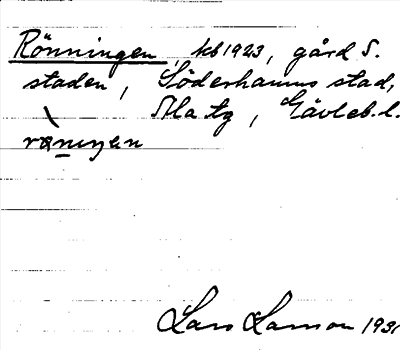 Rönningen, kb 1923, gård S.
staden, Söderhamns stad,
Ala tg, Gävleb. l.
rø̀nıŋen
Lars Larson 1931